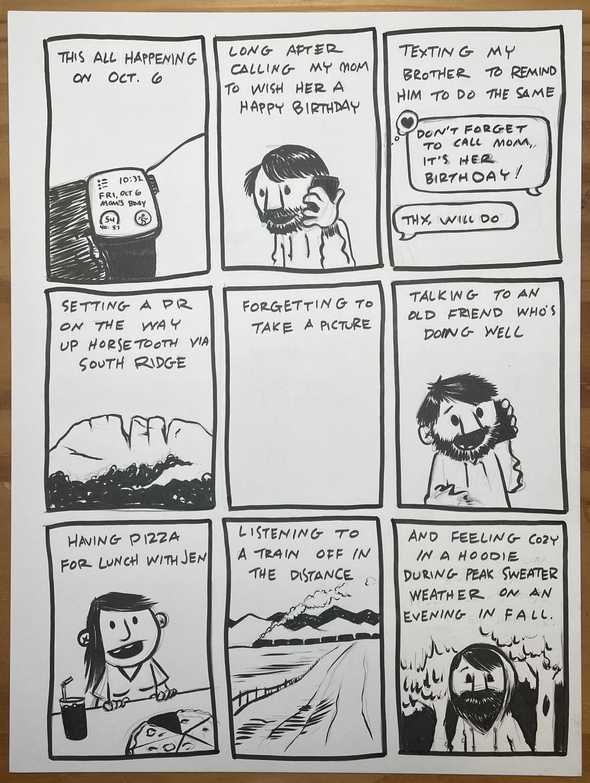 THIS ALL HAPPENING
ON OCT. 6
10:32
FRI, OCT 6
MOM'S BDAY
54
LONG AFTER
CALLING MY MOM
TO WISH HER A
HAPPY BIRTHDAY
TEXTING MY
BROTHER TO REMIND
HIM TO DO THE SAME
DON'T FORGET
TO CALL MOM,
IT'S HER
BIRTHDAY!
THX, WILL DO
SETTING A PR
ON THE WAY
UP HORSETOOTH VIA
SOUTH RIDGE
FORGETTING TO
TAKE A PICTURE
TALKING TO AN
OLD FRIEND WHO'S
DOING WELL
HAVING PIZZA
FOR LUNCH WITH JEN
LISTENING TO
A TRAIN OFF IN
THE DISTANCE
AND FEELING COZY
IN A HOODIE
DURING PEAK SWEATER
WEATHER ON AN
EVENING IN FALL.